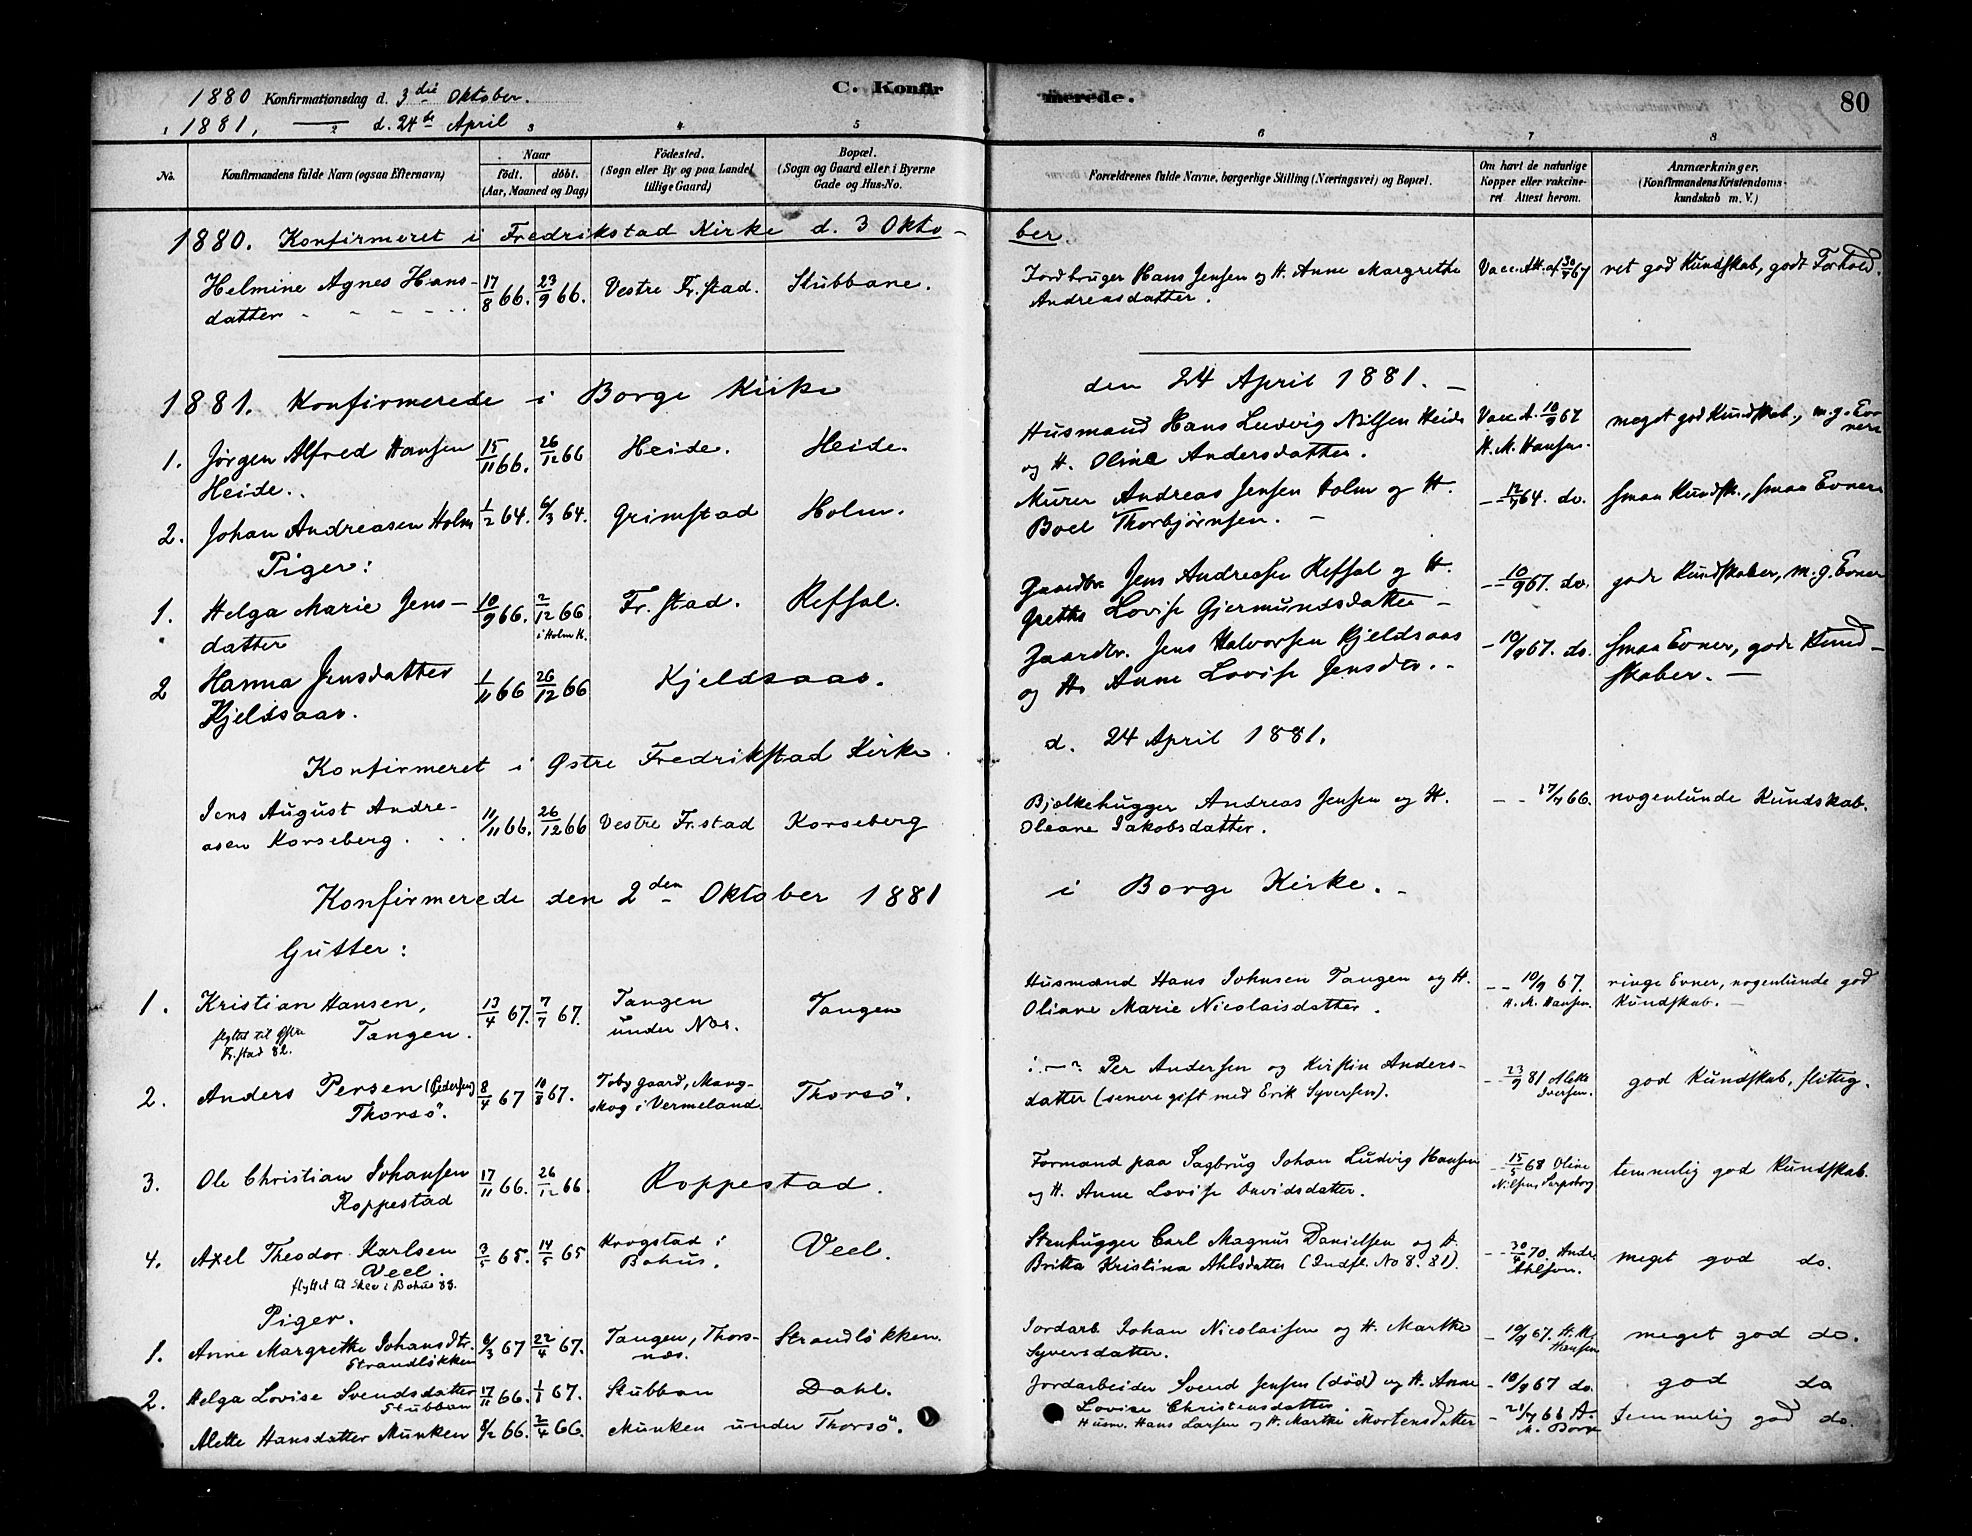 1880 Konfirmationsdag d. 3die Oktober.
1881, d. 24de April
C. Konfirmerede.
80
1 2 3 4 5 6 7 8
No.
Konfirmandens fulde Navn (ogsaa Efternavn)
Naar
født. døbt.
(Aar, Maaned og Dag)
Fødested.
(Sogn eller By og paa Landet
tillige Gaard)
Bopæl.
(Sogn og Gaard eller i Byerne
Gade og Hus-No.
Forældrenes fulde Navne, borgerlige Stilling (Næringsvei) og Bopæl.
Om havt de naturlige
Kopper eller vakcine-
ret Attest herom.
Anmærkninger.
(Konfirmandens Kristendoms-
kundskab m. V.)
1880. Konfirmeret i Fredrikstad Kirke d. 3 Okto-
ber.
Helmine Agnes Hans-
datter
17/8 66. 23/9 66. Vestre Fr.stad. Stubbane.
Jordbruger Hans Jensen og H. Anne Margrethe
Andreasdatter.
Vacc. Att. af 30/9 67 ret god Kundskab, godt Forhold.
1881. Konfirmerede i Borge Kirke
den 24 April 1881. -
1. Jørgen Alfred Hansen
Heide.
15/11 66. 26/12 66 Heide. Heide.
Husmand Hans Ludvig Nilsen Heide
og H. Oline Andersdatter.
Vacc A. 10/9 67
H. M. Hansen.
meget god Kundskab, m. g. Ev
ner
2. Johan Andreasen Holm 1/2 64. 6/3 64. Grimstad Holm.
Murer Andreas Jensen Holm og H.
Boel Thorbjørnsen. -
12/9 64. do. smaa Kundsk., smaa Evner
Piger:
1. Helga Marie Jens-
datter
10/9 66. 2/12 66.
i Holm K.
Fr. stad. Refsal.
Gaardbr. Jens Andreasen Refsal og H.
Grethe Lovise Gjermundsdatter -
- 10/9 67. do. gode Kundskaber, m. g. Evner
2 Hanna Jensdatter
Kjeldsaas.
1/11 66 26/12 66 Kjeldsaas.
Gaardbr. Jens Halvorsen Kjeldsaas
og H. Anne Lovise Jensdtr. -
- 10/9 67. do. smaa Evner, gode Kund-
skaber. -
Konfirmeret i Østre Fredrikstad Kirke
d. 24 April 1881.
Jens August Andre-
asen Korseberg
11/11 66. 26/12 66 Vestre Fr.stad Korseberg
Bjælkehugger Andreas Jensen og H.
Oleane Jakobsdatter.
- - 17/9 66. nogenlunde Kundskab.
Konfirmerede den 2den Oktober 1881
i Borge Kirke. -
Gutter:
1. Kristian Hansen,
Tangen.
flyttet til Østre
Fr.stad 82.
13/4 67. 7/7 67. Tangen
under Næs.
Tangen
Husmand Hans Johnsen Tangen og H.
Oliane Marie Nicolaisdatter.
- - 10/9 67.
H. M. Hansen.
ringe Evner, nogenlunde god
Kundskab. -
2. Anders Persen (Pedersen)
Thorsö.
8/4 67 10/8 67. Tobygaard, Mang-
skog i Vermeland.
Thorsö.
Per Andersen og Kirstin Anders-
datter (senere gift med Erik Syversen).
- - 23/9 81 Alette
Iversen.
god Kundskab, flittig.
3. Ole Christian Johansen
Roppestad
17/11 66. 26/12 66. Roppestad.
Formand paa Sagbrug Johan Ludvig Hansen
og H. Anne Lovise Davidsdatter.
- 15/5 68 Oline
Nilsen, Sarpsborg
temmelig god Kundskab.
4. Axel Theodor Karlsen
Veel.
flyttet til Skee i Bohus 83.
3/5 65. 14/5 65 Krogstad i
Bohus.
Veel.
Stenhugger Carl Magnus Danielsen og H.
Britta Kristina Ahlsdatter (Indfl. No 8. 81).
- - 30/4 70. Andr.
Ahlson.
meget god do.
Piger.
1. Anne Margrethe Johansdtr.
Strandløkken
6/3 67 22/4 67. Tangen, Thors-
næs.
Strandløkken.
Jordarb. Johan Nicolaisen og H. Marthe
Syversdatter.
- 10/9 67. H. M.
Hansen
meget god do.
2. Helga Lovise Svendsdatter
Stubban
17/11 66. 1/1 67. Stubban Dahl.
Jordarbeider Svend Jensen (død) og H. Anne
Lovise Christensdatter.
- 10/9 67 do. god do
Alette Hansdatter Munken 8/2 66. 2/4 66. Munken under Thorsö.
Husm. Hans Larsen og H. Marthe Mortensdatter
- 21/9 66 A.
M. Borge
temmelig god do.